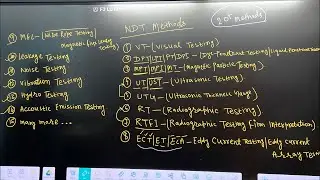 NDT Methods
(20+ methods)
① VT - (Visual Testing)
② DPT/LPT/PT/DPI - (Dye-Penetrant Testing/Liquid Penetrant
③ MPT/MPI/MT - (Magnetic Particle Testing)
④ UT/UST - (Ultrasonic Testing)
⑤ UTG - (Ultrasonic Thickness Gauge)
⑥ RT - (Radiographic Testing)
⑦ RTFI - (Radiographic Testing Film Interpretation)
⑧ ECT/ET/ECA - Eddy Current Testing/Eddy current
Array Testing
⑨ MFL - Flux Testing/
Magnetic Testing
Leakage Testing
Noise Testing
Vibration Testing
Hydro Testing
Accoustic Emission Testing
Many more...